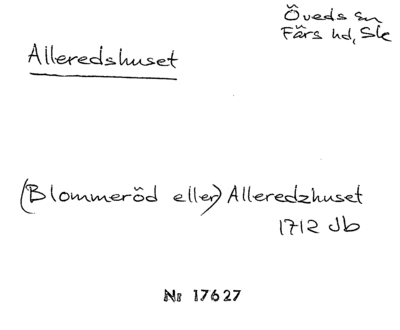 Öveds sn
Färs hd, Sk
Alleredshuset
(Blommeröd eller) Alleredzhuset
1712 Jb
Nr 17627